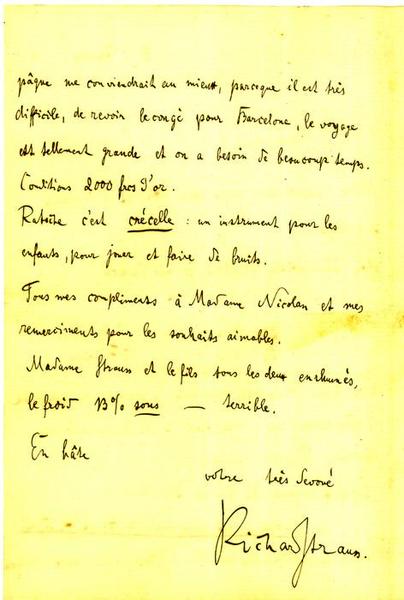 pâque me conviendrait au mieux, parceque il est très
difficile, de revoir le congé pour Barcelone, le voyage
est tellement grande et on a besoin de beaucoup temps.
Conditions 2000 frcs d'or.
Ratsche c'est crécelle: un instrument pour les
enfants, pour jouer et faire de bruits.
Tous mes compliments à Madame Nicolau et mes
remercîments pour les souhaits aimables.
Madame Strauss et le fils tous les deux enrhumés,
le froid 13% sous — terrible.
En hâte
votre très dévoué
Richard Strauss.